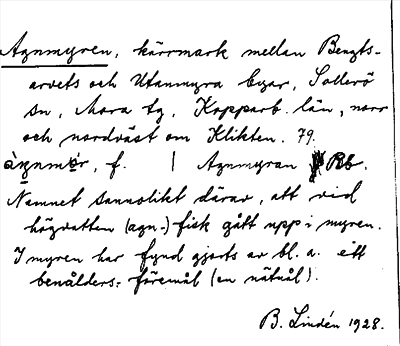 Agnmyren, kärrmark mellan Bengts-
arvets och Utanmyra byar, Sollerö
sn, Mora tg, Kopparb. län, norr
och nordväst om Klikten. 79.
àgnmør, f. | Agnmyran Rb.
Namnet sannolikt därav, att vid
högvatten (agn-) fisk gått upp i myren.
I myren har fynd gjorts av bl. a. ett
benålders-föremål (en nätnål).
B. Lindén 1928.